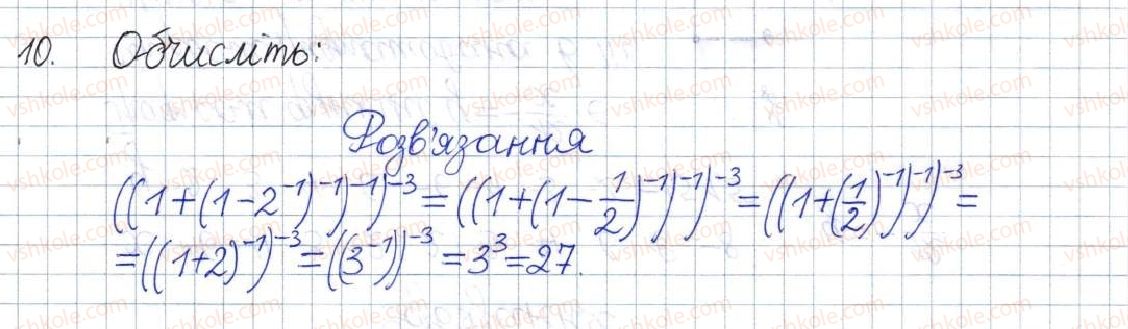 10. Обчисліть:
Розв'язання
((1+(1-2⁻¹)⁻¹)⁻¹)⁻³=((1+(1-1/2)⁻¹)⁻¹)⁻³=((1+(1/2)⁻¹)⁻¹)⁻³=
=((1+2)⁻¹)⁻³=((3⁻¹))⁻³=3³=27.